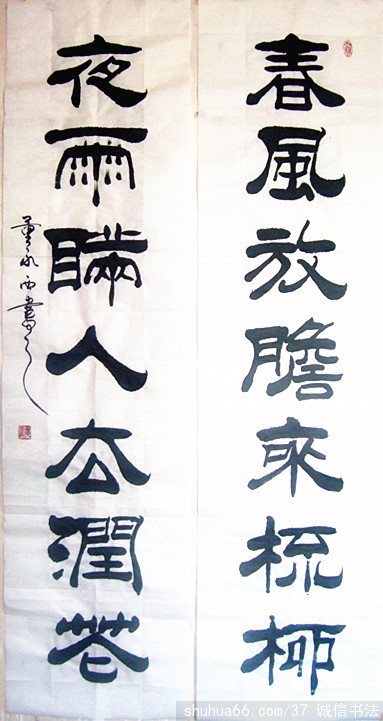 春風放膽來梳柳
夜雨瞞人去潤花
shuhua66.com/37 诚信书法